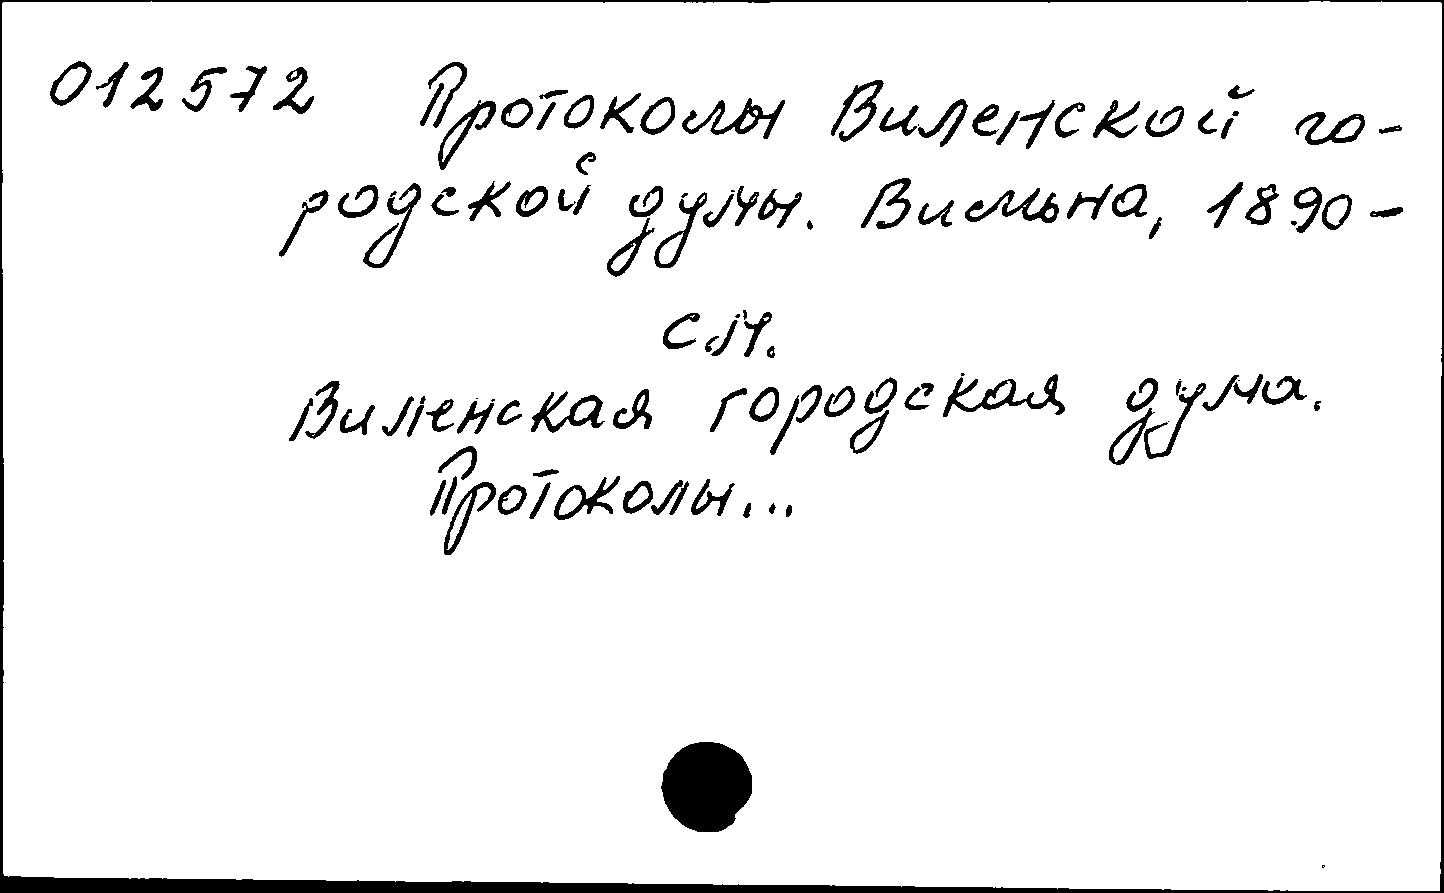 012572 Протоколы Виленской го-
родской думы. Вильна, 1890-
см.
Виленская городская дума.
Протоколы...